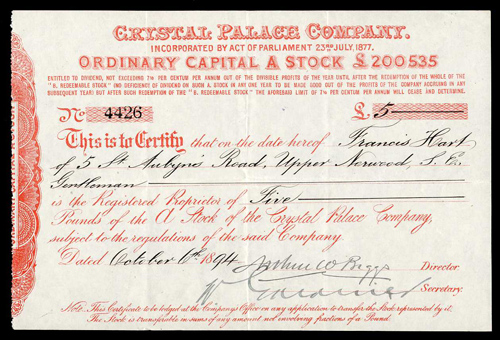 CRYSTAL PALACE COMPANY.
INCORPORATED BY ACT OF PARLIAMENT 23RD JULY, 1877.
ORDINARY CAPITAL A STOCK £200535
ENTITLED TO DIVIDEND, NOT EXCEEDING 7½ PER CENTUM PER ANNUM OUT OF THE DIVISIBLE PROFITS OF THE YEAR UNTIL AFTER THE REDEMPTION OF THE WHOLE OF THE
"B. REDEEMABLE STOCK" (NO DEFICIENCY OF DIVIDEND ON SUCH A STOCK IN ANY ONE YEAR TO BE MADE GOOD OUT OF THE PROFITS OF THE COMPANY ACCRUING IN ANY
SUBSEQUENT YEAR) BUT AFTER SUCH REDEMPTION OF THE "B. REDEEMABLE STOCK" THE AFORESAID LIMIT OF 7½ PER CENTUM PER ANNUM WILL CEASE AND DETERMINE.
No 4426 £ 5
This is to Certify that on the date hereof Francis Hart
of 5 St. Aubyn's Road, Upper Norwood, S. E.
Gentleman
is the Registered Proprietor of Five
Pounds of the A Stock of the Crystal Palace Company,
subject to the regulations of the said Company.
Dated October 6th 1894 Director.
W Gardiner Secretary.
Note: This Certificate to be lodged at the Company's Office on any application to transfer the Stock represented by it.
The Stock is transferable in sums of any amount not involving fractions of a Pound.